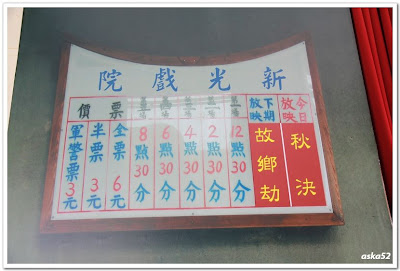 新光戲院
今日放映
秋決
下期放映
故鄉劫
12點30分
2點30分
4點30分
6點30分
8點30分
票價
全票6元
半票3元
軍警票3元
aska52